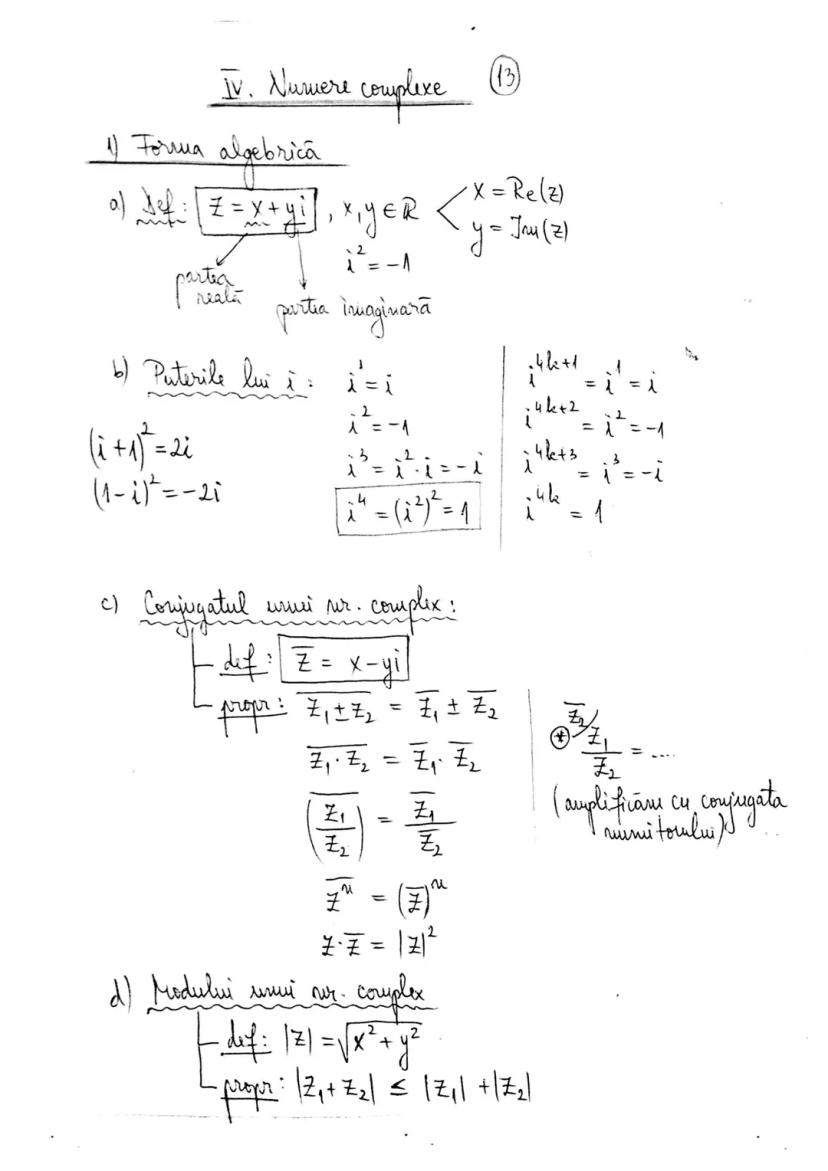 IV. Numere complexe (13)
1) Forma algebrică
a) Def: z = x + yi , x, y ∈ ℝ < x = Re(z)
y = Im(z)
i² = -1
partea reală
partea imaginară
b) Puterile lui i: i¹ = i
i² = -1
i³ = i²·i = -i
i⁴ = (i²)² = 1
(i+1)² = 2i
(1-i)² = -2i
i^(4k+1) = i¹ = i
i^(4k+2) = i² = -1
i^(4k+3) = i³ = -i
i^(4k) = 1
c) Conjugatul unui nr. complex:
def: z̅ = x - yi
propr: \overline{z₁ ± z₂} = \overline{z₁} ± \overline{z₂}
\overline{z₁ · z₂} = \overline{z₁} · \overline{z₂}
\overline{(z₁/z₂)} = \overline{z₁}/\overline{z₂}
\overline{zⁿ} = (z̅)ⁿ
z · z̅ = |z|²
* \overline{z₂}) z₁/z₂ = ....
(amplificăm cu conjugata
numitorului)
d) Modului unui nr. complex
def: |z| = √(x² + y²)
propr: |z₁ + z₂| ≤ |z₁| + |z₂|